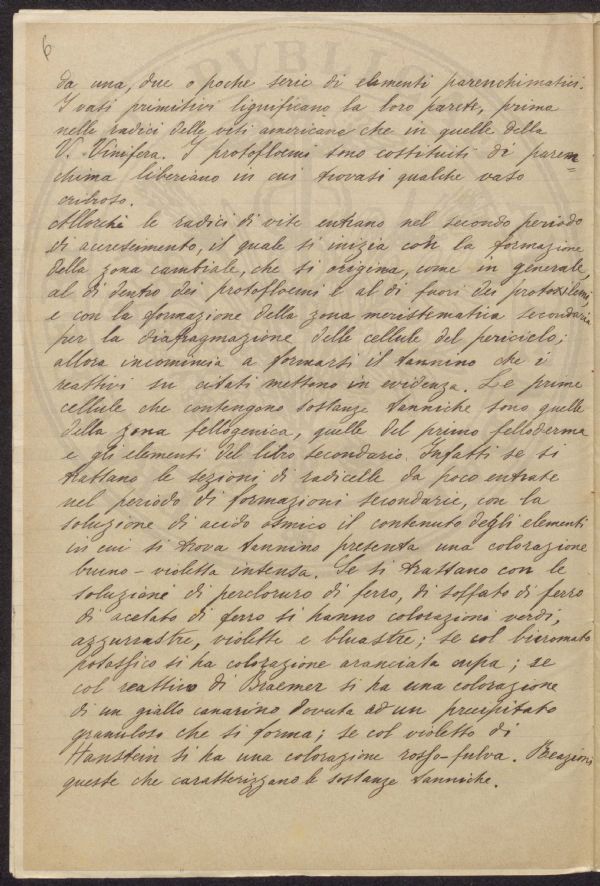 6
da una, due o poche serie di elementi parenchimatici.
I vasi primitivi lignificano la loro parete, prima
nelle radici delle viti americane che in quelle della
V. Vinifera. I protofloemi sono costituiti di paren=
chima liberiano in cui trovasi qualche vaso
cribroso.
Allorchè le radici di vite entrano nel secondo periodo
di accrescimento, il quale si inizia con la formazione
della zona cambiale, che si origina, come in generale,
al di dentro dei protofloemi e al di fuori dei protoxilemi
e con la formazione della zona meristematica secondaria
per la diafragmazione delle cellule del periciclo;
allora incomincia a formarsi il tannino che i
reattivi su citati mettono in evidenza. Le prime
cellule che contengono sostanze tanniche sono quelle
della zona fellogenica, quelle del primo felloderma
e gli elementi del libro secondario. Infatti se si
trattano le sezioni di radicelle da poco entrate
nel periodo di formazioni secondarie, con la
soluzione di acido osmico il contenuto degli elementi
in cui si trova tannino presenta una colorazione
bruno-violetta intensa. Se si trattano con le
soluzioni di percloruro di ferro, di solfato di ferro
di acetato di ferro si hanno colorazioni verdi,
azzurrastre, violette e bluastre; se col bicromato
potassico si ha colorazione aranciata cupa; se
col reattivo di Braemer si ha una colorazione
di un giallo canarino dovuta ad un precipitato
granuloso che si forma; se col violetto di
Hanstein si ha una colorazione rosso-fulva. Reazioni
queste che caratterizzano le sostanze tanniche.
PVBLIC